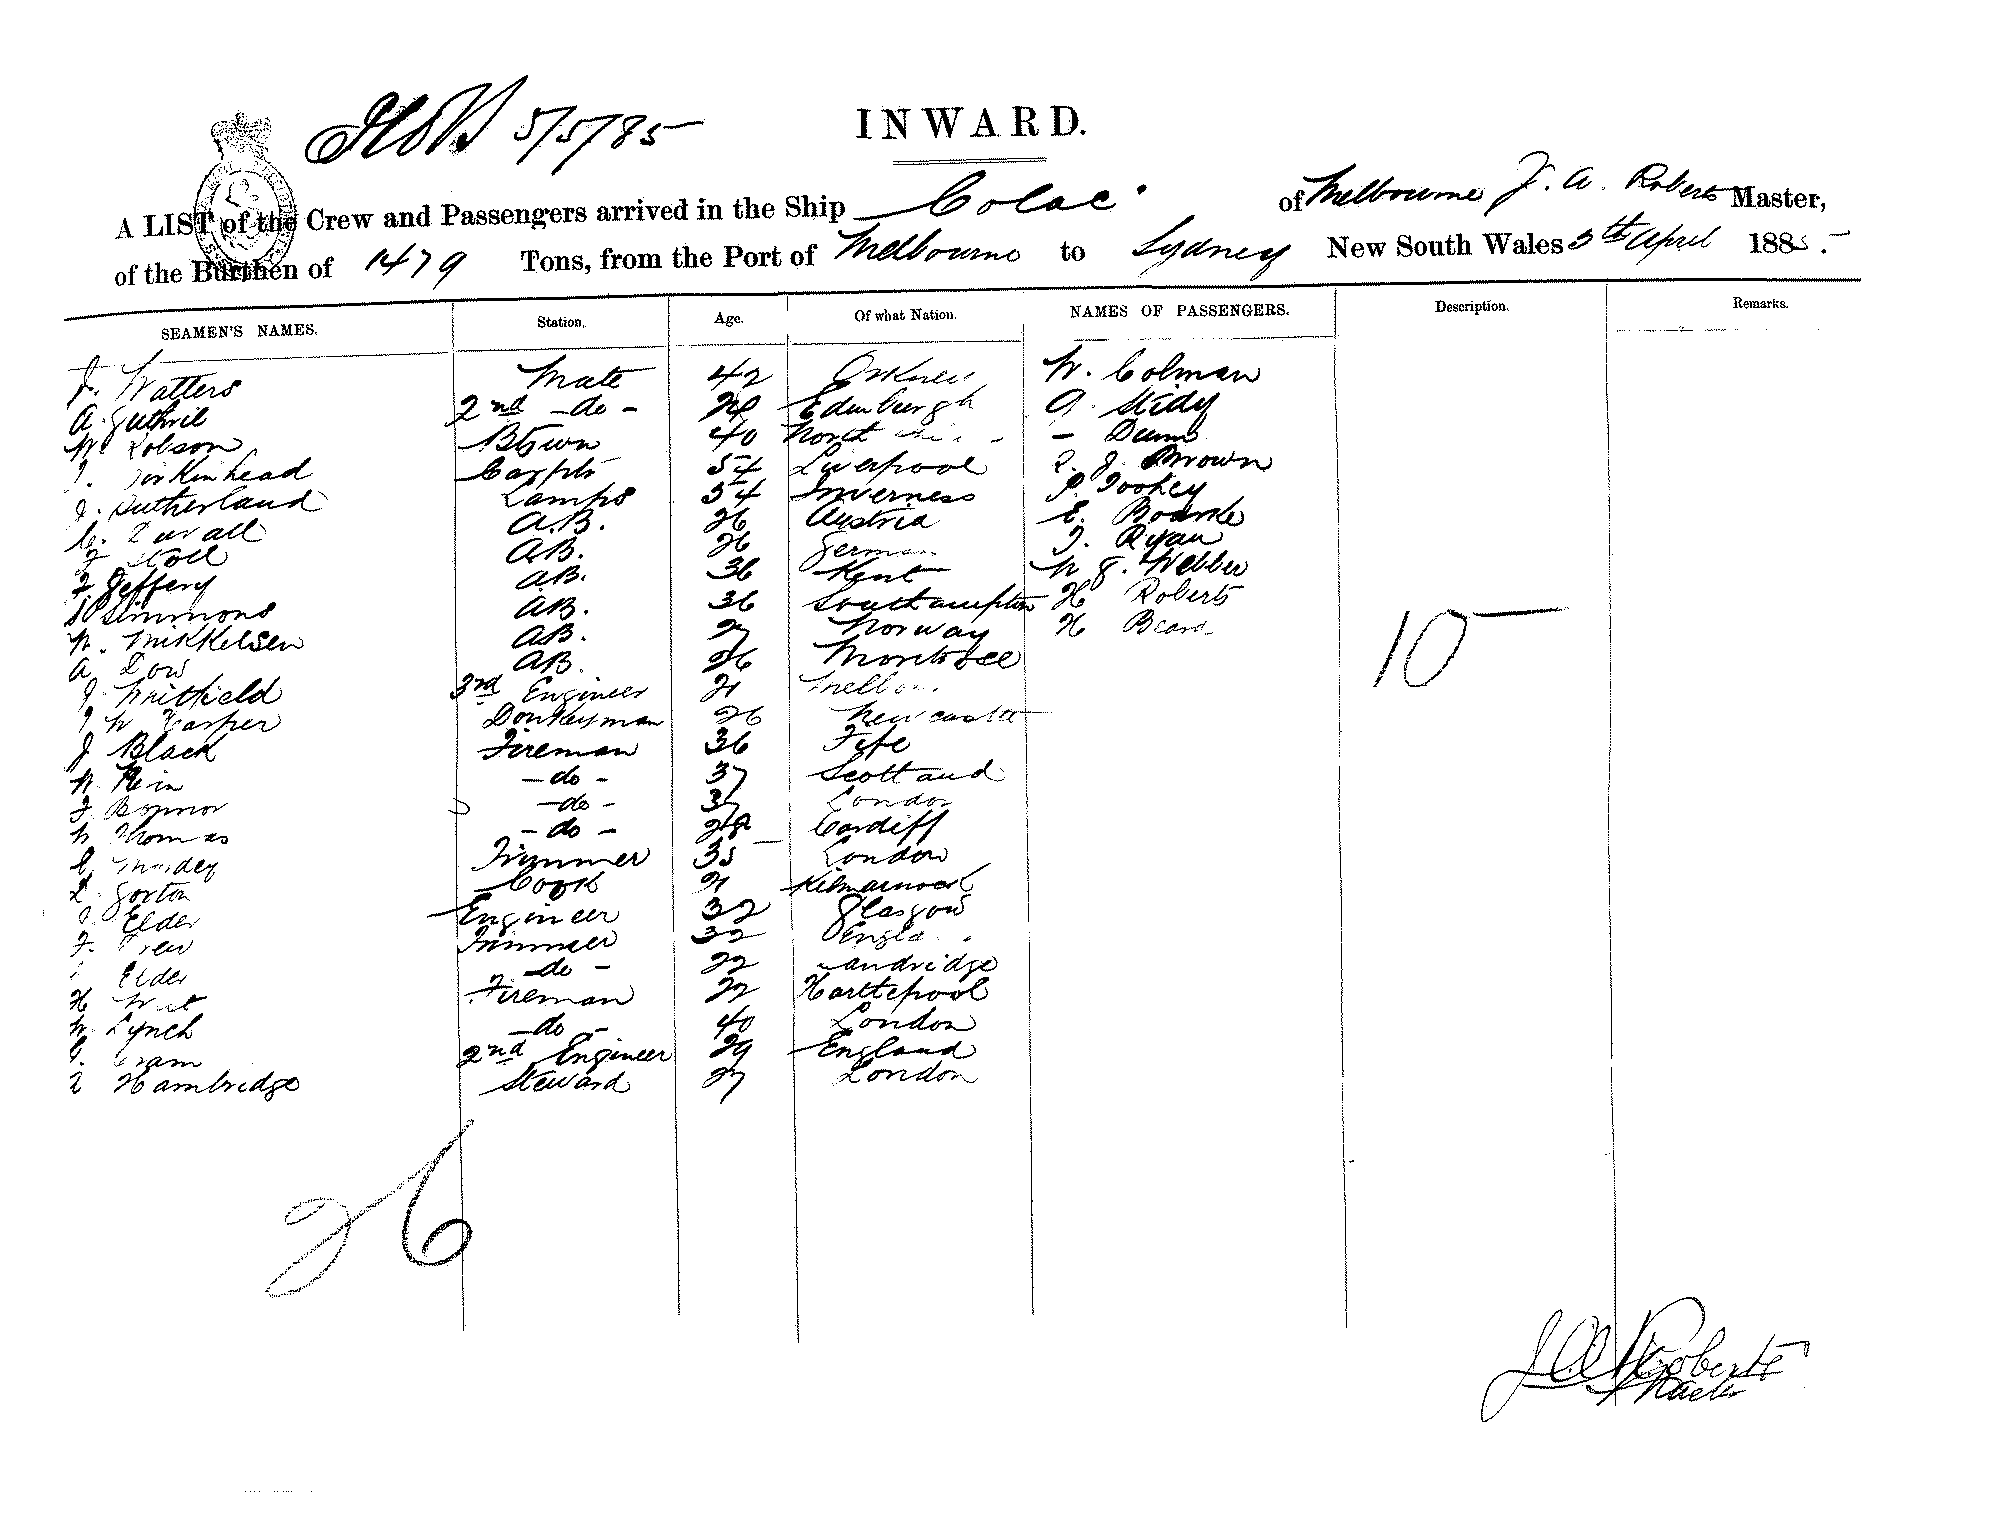 5/5/85
INWARD.
A LIST of the Crew and Passengers arrived in the Ship Colac of Melbourne J. A. Roberts Master,
of the Burthen of 1479 Tons, from the Port of Melbourne to Sydney New South Wales 5th April 1885.
SEAMEN'S NAMES. Station. Age. Of what Nation. NAMES OF PASSENGERS. Description. Remarks.
J. Watters Mate 42 Orkney W. Colman
A. Guthrie 2nd - do - Edinburgh
W. Robson 40 North - Dunn
54 Liverpool Brown
J. Sutherland Lamps 54 Inverness P. Tookey
A.B. 26 Austria E. Bourke
AB. 26 German J. Ryan
Jeffery AB. 36 Kent W. J. Webber
Simmons AB. 36 Southampton H Roberts
N. Mikkelsen AB. 27 Norway H Beard
A Dow AB. 26 Montrose
10
J Whitfield 3rd Engineer 21
J W Harper Donkeyman 26 Newcastle
J Black Fireman 36 Fife
- do - 37 Scotland
- do - 37 London
W Thomas - do - 28 Cardiff
Trimmer 35 London
Gorton Cook 21 Kilmarnock
Elder Engineer 32 Glasgow
Trimmer 32
Elder - do - 22
H Fireman 22 Hartlepool
W. Lynch - do - 40 London
2nd Engineer 29 England
Hambridge Steward 27 London
26
J A Roberts
Master